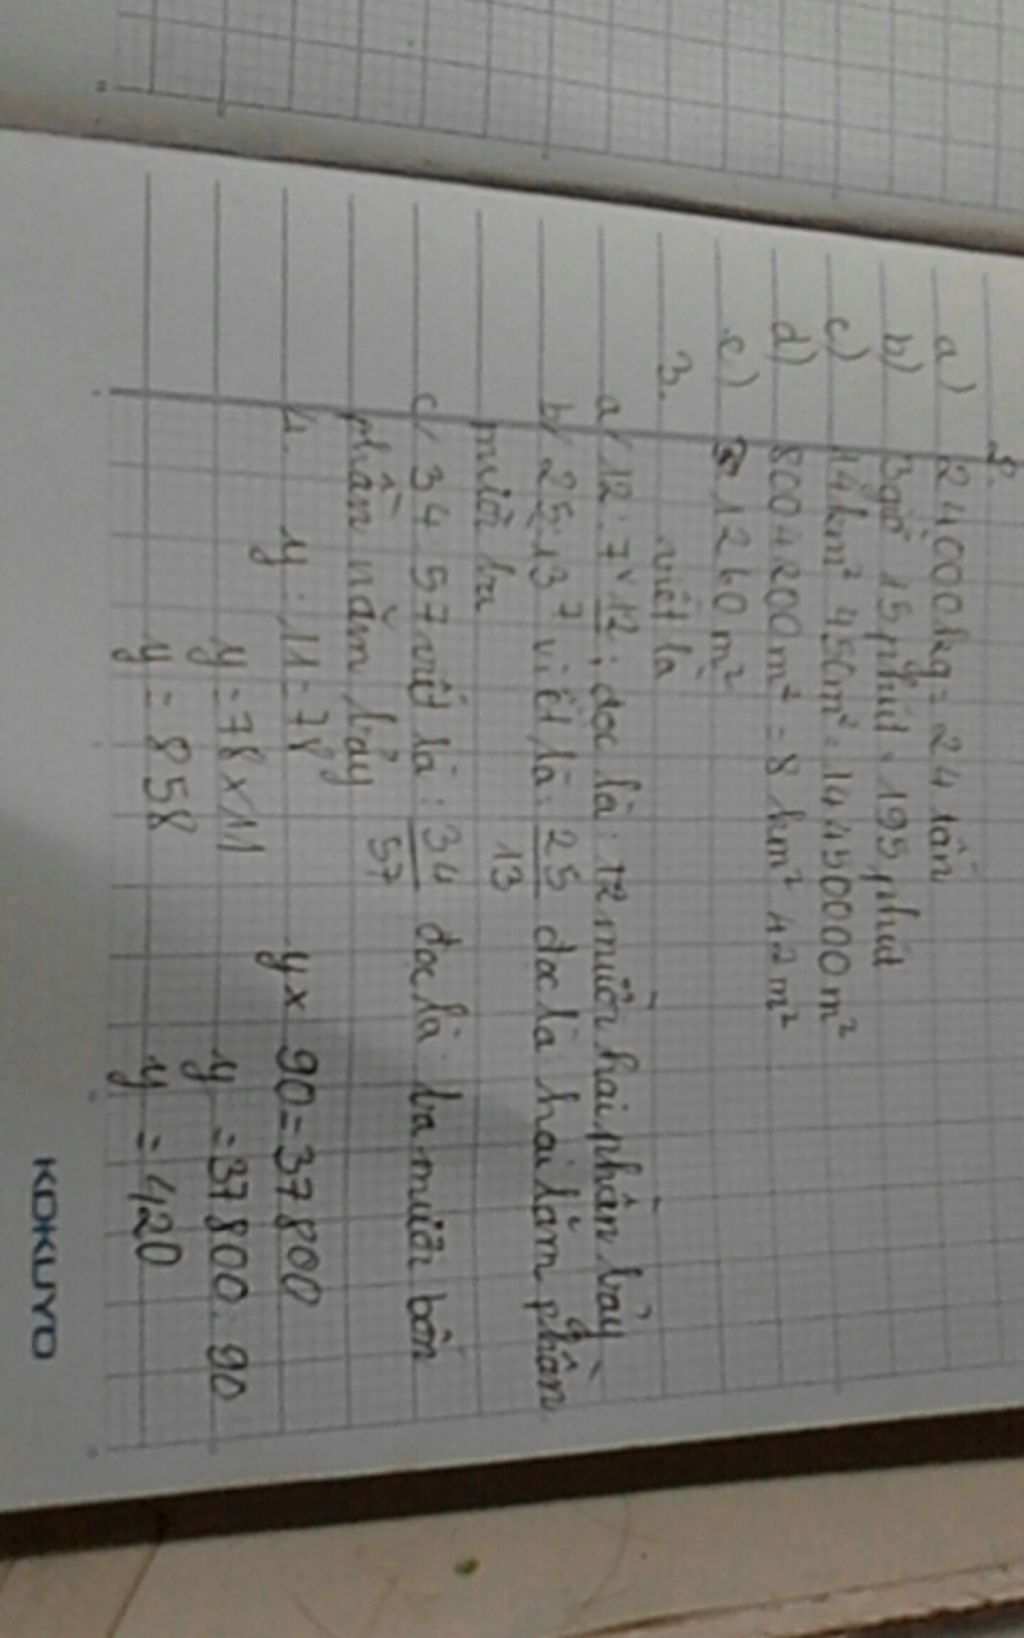 2.
a) 24000kg = 24 tấn
b) 3giờ 15 phút = 195 phút
c) 14km² 450m² = 14450000m²
d) 8004200m² = 8 km² 42m²
e) 1260m²
3. viết là
a/ 12:7 12; đọc là: 12 mười hai phần bảy
b/ 25:13 viết là: 25/13 đọc là hai lăm phần
mười ba
c/ 34 57 viết là: 34/57 đọc là: ba mười bốn
phần năm bảy
4. y : 11 = 78 y x 90 = 37800
y = 78 x 11 y = 37800 : 90
y = 858 y = 420
KOKUYO